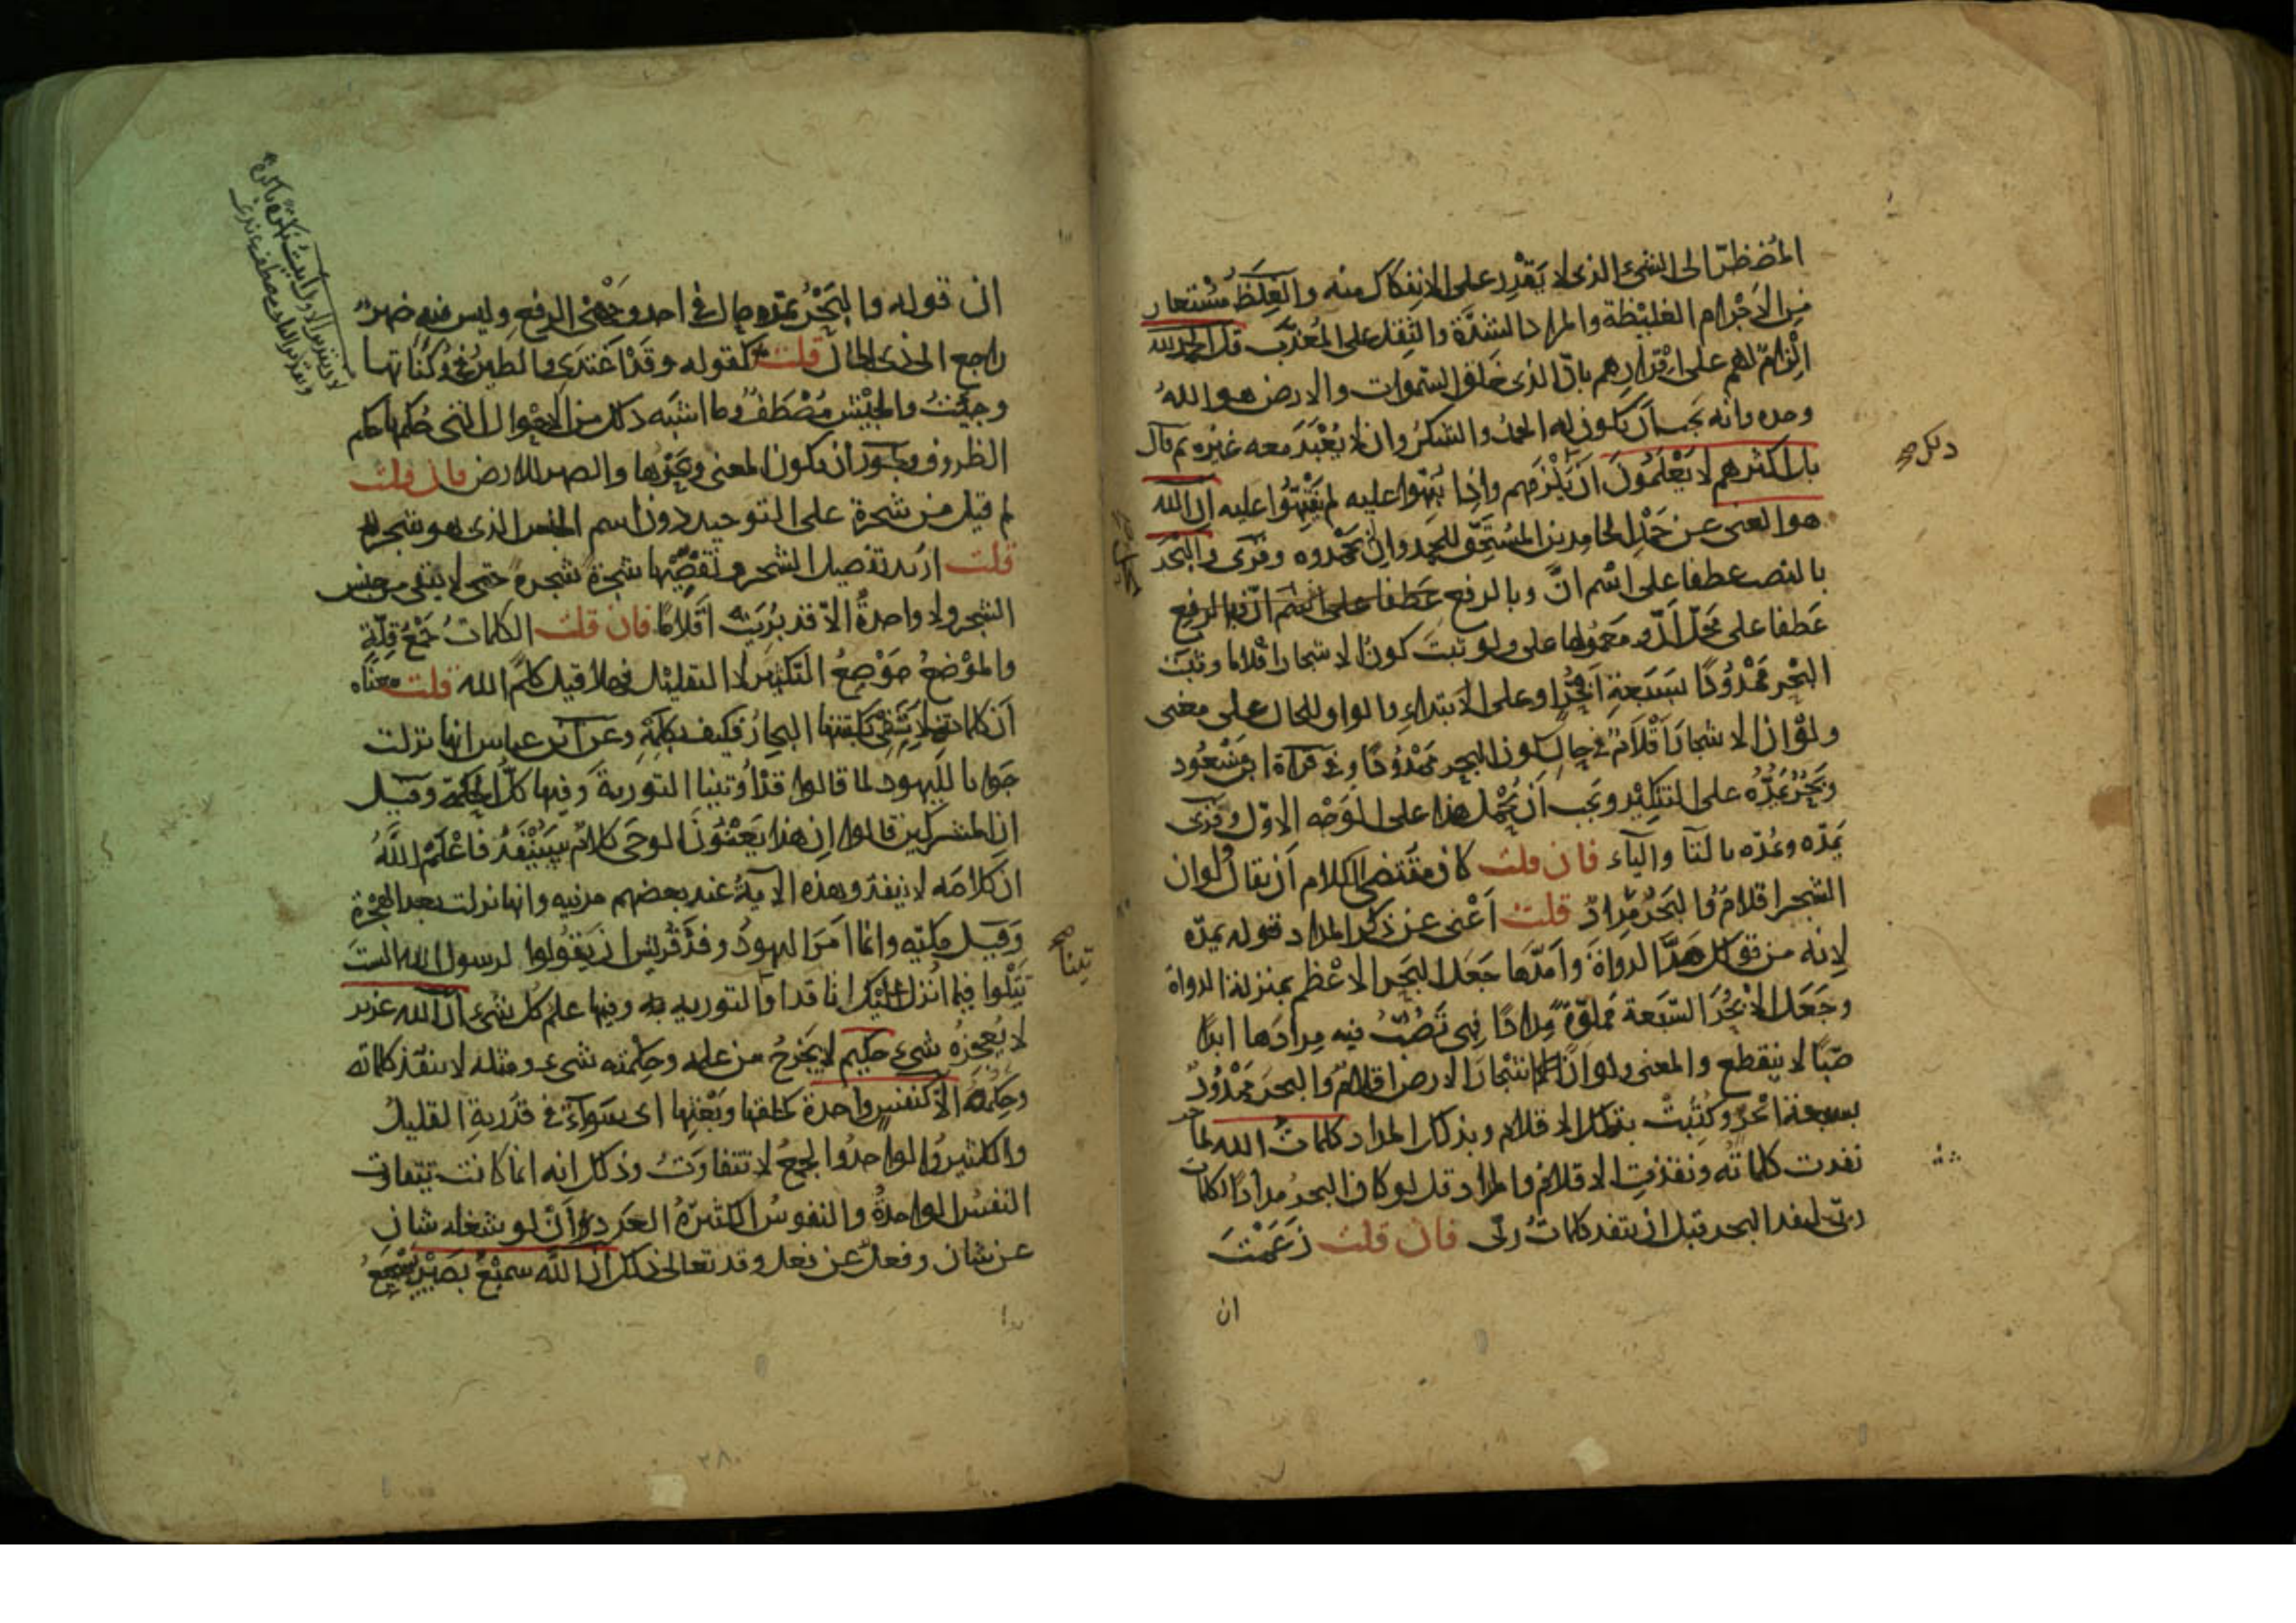 المُضْطَرّ الى الشىء الذى لا يَقْدِر على الانفكاك منه والغِلَظُ مُسْتعار
من الاَجْرام الغليْظة والمراد الشدّة والثِقَل على المُعَذّب قل الحمد لله
اِلْزامٌ لهم على اِقْرارهم بانّ الذى خلق السَّموات والارض هو اللهُ
وحده وانه يجب اَن يكون له الحمدُ والشكرُ وان لا يُعْبَدَ معه غيره ثم قال
بل اكثرهم لا يَعْلَمُونَ انّ يَلْزمهم واِذا نُبّهُوا عليه لم يَنْتَبِهُوا عليه اِنّ الله
هو الغنى عن حَمْدِ الحامدين المُسْتَحِقّ للحمد واِن لم يَحْمَدوه وقُرِئ والبَحْرَ
بالنصب عطفا على اسْم انّ وبالرفع عَطفا على اسم انّ وبالرفع
عَطفا على مَحَلّ اَنّ ومَعمُولها على ولو ثبت كونُ الاشجار اقلاما وثَبَتَ
البَحْر مَمْدُودًا بسَبعةِ اَبْحُرٍ او على الابتداء والواو للحال على معنى
ولَوْ ان الاشجارَ اَقْلامٌ فى حال كون البحر مَمْدُودًا وفى قرآة ابن مَسْعُود
وبَحْرٌ يَمُدُّهُ على التنكير ويَجب اَنْ يُحْمَلَ هذا على الوَجْه الاوّل وقُرِئ
تَمدّه ويمُدّه بالتآ واليآء فان قلت كان مقتضى الكلام اَن يقالَ ولو ان
الشجر اقلامٌ والبَحْرُ مِدادٌ قلتُ اَغْنى عن ذكر المداد قوله يمدّه
لانه من قولك مَدَّ الدواةَ وأمدّها جَعَلَ البَحْر الاعْظم بمنزلة الدواة
وجَعَلَ الاَبْحُرَ السَّبعة مملوّةً مِدادًا فهى تَصُبُّ فيه مِدادَها ابدًا
صبًّا لا ينقطع والمعنى ولو انّ اشجارَ الارض اقلامٌ والبحرَ مَمْدُودٌ
بسبعة ابحر وكُتِبَتْ بتلك الاقلام وبذلك المداد كلماتُ الله لما
نفدت كلماتُه ونفدتِ الاقلامُ والمداد قل لو كان البحرُ مِدادًا لكلمات
ربّى لنفد البحر قبل ان تنفد كلماتُ ربّى فان قلت زَعَمْتَ
ان
ان قوله والبَحْرُ يمدّه حال فى احد وَجْهَىِ الرفع وليس فيه ضميرٌ
راجع الى ذى الحال قلت كقوله وقَدْ اَغْتَدِى والطيرُ فى وُكُنَاتها
وجِئْتُ والجَيْشُ مُصْطَفٌّ وما اشبَه ذلك من الاحوال التى حُكمُها حكم
الظروف ويجوز ان يكون المعنى وبَحْرُها والضمير للارض فان قلت
لم قيل من شجرة على التوحيد دون اسم الجنس الذى هو شجر
قلت اريد تفصيل الشجر وتَقَصِّيها شجرة شجرة حتى لا يبقى من جنس
الشجر ولا واحدةٌ الاّ قد بُرِيَتْ اَقْلامًا فان قلت الكلماتُ جَمْعُ قِلّةٍ
والمَوْضعُ مَوْضِعُ التكثير لا التقليل فهلا قيل كلِمُ الله قلت معناه
اَن كلماته لا تَفِى بكَتبتها البحارُ فكيف بكَلِمِه وعن ابن عباس انها نزلت
جَوابا لليهود لما قالوا قدْ اُوتينا التوريةَ وفيها كلُّ الحِكمة وقيل
ان المشركين قالوا اِن هذا يَعْنُونَ الوحى كلامٌ سَيَنْفَدُ فاعْلَمَ اللهُ
ان كلامَه لا ينفد وهذه الآيةُ عند بعضهم مدنيه وانها نزلت بعد الهجرة
وَقيل مكّيّه وانّما اَمَرَ اليهودُ وفدَ قُريش ان يَقُولوا لرسول الله الستَ
تَتْلُوا فيما اُنْزل عليك انا قد التوريه وفيها علم كل شىء ان الله عزيز
لا يُعجِزُه شىء حكيم لا يَخْرُجُ من علمه وحِكْمته شىء ومثله لا تنفد كلماته
وحِكَمُه الاّ كنفسٍ واحدة كخلقها وبَعْثِها اى سَواءٌ فى قُدْرته القليلُ
والكثيرُ والواحدُ والجمعُ لا تتفاوَتُ وذلك انه انما كانت تتفاوت
النفسُ الواحدةُ والنفوسُ الكثيرةُ العَدد اَنْ لو شغله شان
عن شان وفعلٌ عن فعل وقد تعالى عن ذلك اِنّ الله سَميْعٌ بَصيْرٌ يَسْمَعُ